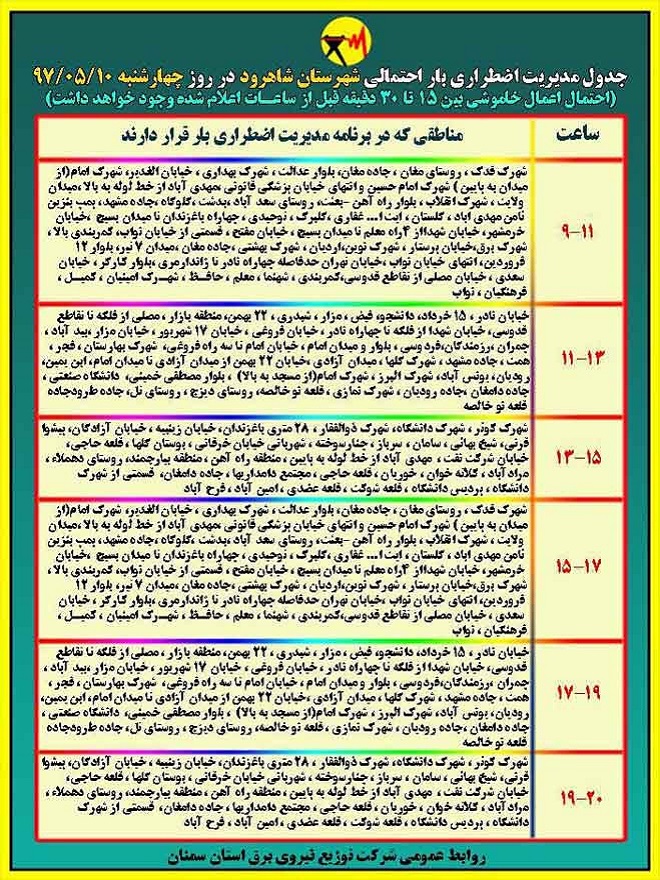 جدول مدیریت اضطراری بار احتمالی شهرستان شاهرود در روز چهارشنبه ۹۷/۰۵/۱۰
(احتمال اعمال خاموشی بین ۱۵ تا ۳۰ دقیقه قبل از ساعات اعلام شده وجود خواهد داشت)
ساعت
مناطقی که در برنامه مدیریت اضطراری بار قرار دارند
۹-۱۱
شهرک فدک ، روستای مغان ، جاده مغان، بلوار عدالت ، شهرک بهداری ، خیابان الغدیر، شهرک امام(از
میدان به پایین ) شهرک امام حسین و انتهای خیابان پزشکی قانونی ،مهدی آباد از خط لوله به بالا ،میدان
ولایت ، شهرک انقلاب، بلوار راه آهن -بعثت، روستای سعد آباد ،بدشت ،کلوگاه، جاده مشهد، پمپ بنزین
ثامن مهدی اباد ، گلستان ، ایت ا... غفاری ،گلبرک ، توحیدی ، چهاراه باغزندان تا میدان بسیج ،خیابان
خرمشهر، خیابان شهدااز ۴راه معلم تا میدان بسیج ، خیابان مفتح ، قسمتی از خیابان نواب، کمربندی بالا ،
شهرک برق،خیابان پرستار ، شهرک نوین،اردیان ، شهرک بهشتی ،جاده مغان ،میدان ۷ تیر، بلوار ۱۲
فروردین، انتهای خیابان نواب ،خیابان تهران حدفاصله چهاراه نادر تا ژاندارمری ،بلوار کارگر ، خیابان
سعدی ، خیابان مصلی از تقاطع قدوسی،کمربندی ، شهنما ، معلم ، حافظ ، شهرک امینیان ، کمیل ،
فرهنگیان ، نواب
۱۱-۱۳
خیابان نادر ، ۱۵ خرداد، دانشجو، فیض ، مزار ، شیدری ، ۲۲ بهمن، منطقه بازار ، مصلی از فلکه تا تقاطع
قدوسی، خیابان شهدا از فلکه تا چهاراه نادر ، خیابان فروغی ، خیابان ۱۷ شهریور ، خیابان مزار ،بید آباد ،
چمران ،رزمندگان،فردوسی ، بلوار و میدان امام ، خیابان امام تا سه راه فروغی ، شهرک بهارستان ، فجر ،
همت ، جاده مشهد ، شهرک گلها ، میدان آزادی ،خیابان ۲۲ بهمن از میدان آزادی تا میدان امام، ابن یمین،
رودیان، یونس آباد، شهرک البرز ، شهرک امام(از مسجد به بالا) ، بلوار مصطفی خمینی، دانشگاه صنعتی ،
جاده دامغان ،جاده رودیان ، شهرک نمازی ، قلعه نو خالصه، روستای دیزج ، روستای تل، جاده طرودجاده
قلعه نو خالصه
۱۳-۱۵
شهرک کوثر ، شهرک دانشگاه، شهرک ذوالفقار ، ۲۸ متری باغزندان، خیابان زینبیه ، خیابان آزادگان، پیشوا
قرنی، شیخ بهائی ، سامان ، سرباز ، چنارسوخته ، شهربانی خیابان خرقانی ، بوستان گلها ، قلعه حاجی،
خیابان شرکت نفت ، مهدی آباد از خط لوله به پایین ، منطقه راه آهن ، منطقه بیارجمند، روستای دهملاء ،
مراد آباد ، کلاته خوان ، خوریان ، قلعه حاجی ، مجتمع دامداریها ، جاده دامغان، قسمتی از شهرک
دانشگاه ، پردیس دانشگاه ، قلعه شوکت ، قلعه عضدی ، امین آباد ، فرح آباد
۱۵-۱۷
شهرک فدک ، روستای مغان ، جاده مغان، بلوار عدالت ، شهرک بهداری ، خیابان الغدیر، شهرک امام(از
میدان به پایین ) شهرک امام حسین و انتهای خیابان پزشکی قانونی ،مهدی آباد از خط لوله به بالا ،میدان
ولایت ، شهرک انقلاب، بلوار راه آهن -بعثت، روستای سعد آباد ،بدشت ،کلوگاه، جاده مشهد، پمپ بنزین
ثامن مهدی اباد ، گلستان ، ایت ا... غفاری ،گلبرک ، توحیدی ، چهاراه باغزندان تا میدان بسیج ،خیابان
خرمشهر، خیابان شهدااز ۴راه معلم تا میدان بسیج ، خیابان مفتح ، قسمتی از خیابان نواب، کمربندی بالا ،
شهرک برق،خیابان پرستار ، شهرک نوین،اردیان ، شهرک بهشتی ،جاده مغان ،میدان ۷ تیر، بلوار ۱۲
فروردین، انتهای خیابان نواب ،خیابان تهران حدفاصله چهاراه نادر تا ژاندارمری ،بلوار کارگر ، خیابان
سعدی ، خیابان مصلی از تقاطع قدوسی،کمربندی ، شهنما ، معلم ، حافظ ، شهرک امینیان ، کمیل ،
فرهنگیان ، نواب
۱۷-۱۹
خیابان نادر ، ۱۵ خرداد، دانشجو، فیض ، مزار ، شیدری ، ۲۲ بهمن، منطقه بازار ، مصلی از فلکه تا تقاطع
قدوسی، خیابان شهدا از فلکه تا چهاراه نادر ، خیابان فروغی ، خیابان ۱۷ شهریور ، خیابان مزار ،بید آباد ،
چمران ،رزمندگان،فردوسی ، بلوار و میدان امام ، خیابان امام تا سه راه فروغی ، شهرک بهارستان ، فجر ،
همت ، جاده مشهد ، شهرک گلها ، میدان آزادی ،خیابان ۲۲ بهمن از میدان آزادی تا میدان امام، ابن یمین،
رودیان، یونس آباد، شهرک البرز ، شهرک امام(از مسجد به بالا) ، بلوار مصطفی خمینی، دانشگاه صنعتی ،
جاده دامغان ،جاده رودیان ، شهرک نمازی ، قلعه نو خالصه، روستای دیزج ، روستای تل، جاده طرودجاده
قلعه نو خالصه
۱۹-۲۰
شهرک کوثر ، شهرک دانشگاه، شهرک ذوالفقار ، ۲۸ متری باغزندان، خیابان زینبیه ، خیابان آزادگان، پیشوا
قرنی، شیخ بهائی ، سامان ، سرباز ، چنارسوخته ، شهربانی خیابان خرقانی ، بوستان گلها ، قلعه حاجی،
خیابان شرکت نفت ، مهدی آباد از خط لوله به پایین ، منطقه راه آهن ، منطقه بیارجمند، روستای دهملاء ،
مراد آباد ، کلاته خوان ، خوریان ، قلعه حاجی ، مجتمع دامداریها ، جاده دامغان، قسمتی از شهرک
دانشگاه ، پردیس دانشگاه ، قلعه شوکت ، قلعه عضدی ، امین آباد ، فرح آباد
روابط عمومی شرکت توزیع نیروی برق استان سمنان